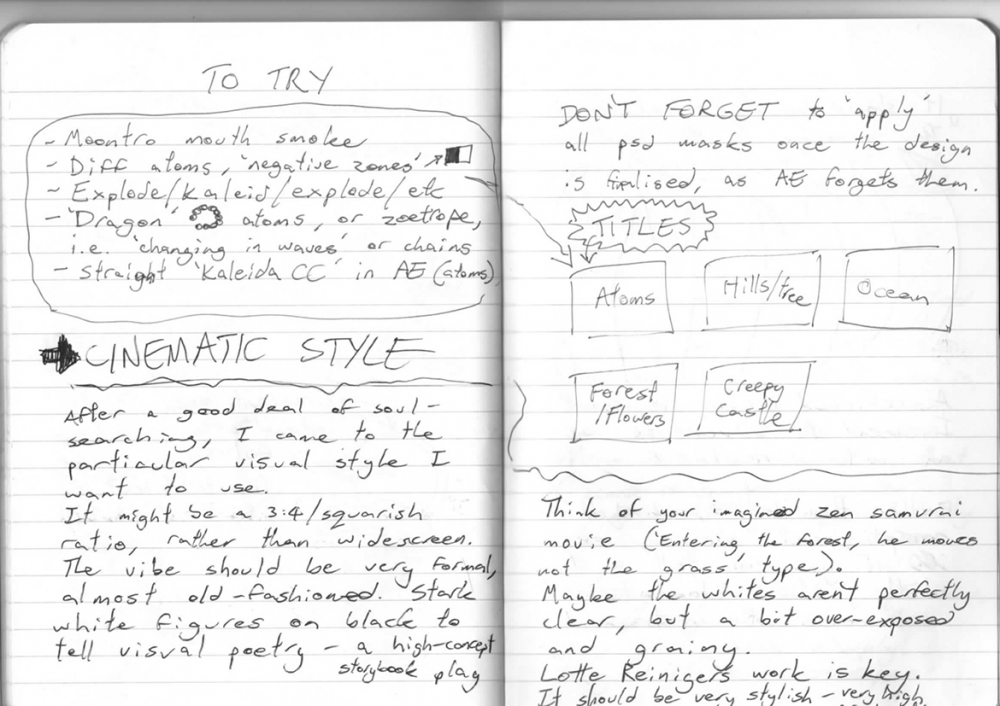 TO TRY
- Moontro mouth smoke
- Diff atoms, 'negative zones'
- Explode/kaleid/explode/etc
- 'Dragon' atoms, or zoetrope,
i.e. 'changing in waves' or chains
- straight 'Kaleida CC' in AE (atoms)
CINEMATIC STYLE
After a good deal of soul-
searching, I came to the
particular visual style I
want to use.
It might be a 3:4/squarish
ratio, rather than widescreen.
The vibe should be very formal,
almost old-fashioned. Stark
white figures on black to
tell visual poetry - a high-concept
storybook play
DON'T FORGET to 'apply'
all psd masks once the design
is finalised, as AE forgets them.
TITLES
Atoms
Hills/tree
Ocean
Forest
/Flowers
Creepy
Castle
Think of your imagined zen samurai
movie ('Entering the forest, he moves
not the grass', type).
Maybe the whites aren't perfectly
clear, but a bit over-exposed
and grainy.
Lotte Reinigers work is key.
It should be very stylish - very high